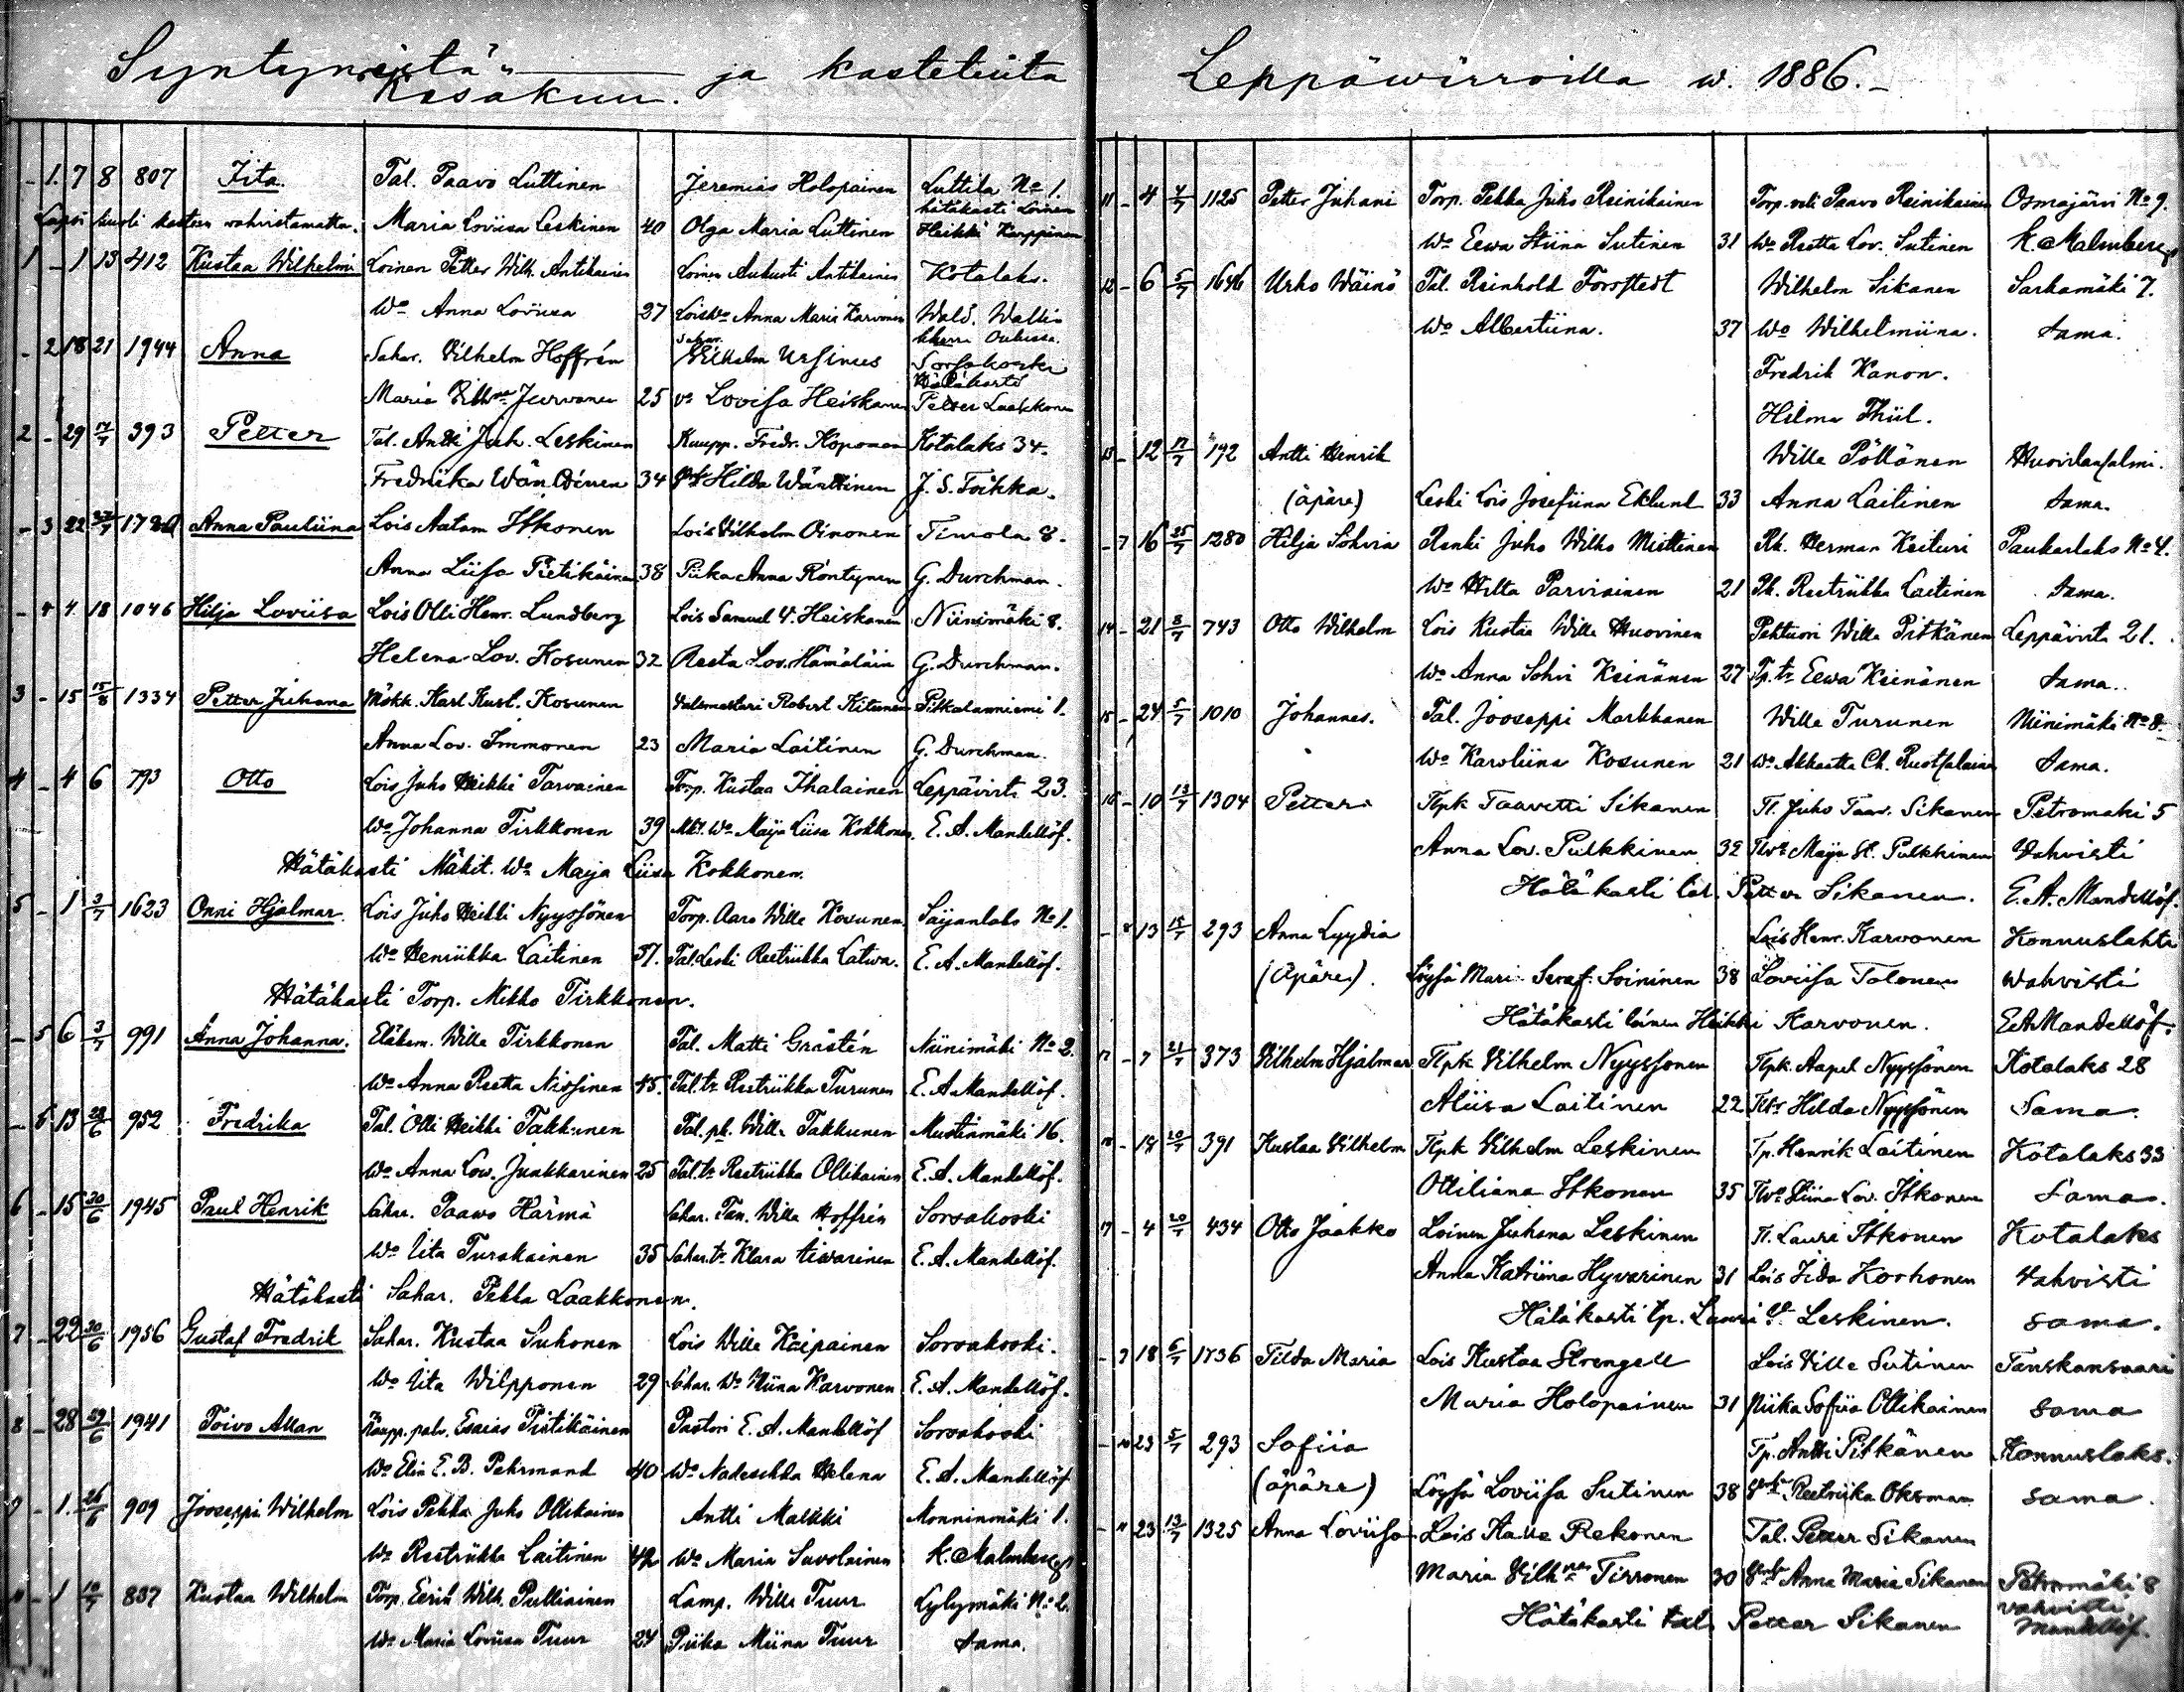 Syntyneistä ja kastetuita
Kesäkuu.
- 1. 7 8 807 Iita. Tal. Paavo Luttinen Jeremias Holopainen Luttila No 1.
Lapsi kuoli kasteen vahvistamatta. Maria Loviisa Leskinen 40 Olga Maria Luttinen hätäkasti Loinen Heikki Karppinen
1 - 1 13 412 Kustaa Wilhelmi Loinen Petter Wilh. Antikainen Loinen Aukusti Antikainen Kotalaks.
Wo Anna Loviisa 27 Lois Wo Anna Maria Karvonen Wald. Wallin
- 2 18 21 1944 Anna Sahar. Vilhelm Hoffrén Sahar. Vilhelm Ursinus Sorsakoski
Hätäkasti
Maria Vilhna Jurvanen 25 vo Lovisa Heiskanen Petter Laakkonen
2 - 29 17/7 393 Petter Tal. Antti Juh. Leskinen Kaupp. Fredr. Koponen Kotalaks 34.
Fredriika Wänttinen 34 Hilda Wänttinen J. S. Toikka.
- 3 22 27/7 Anna Pauliina Lois Aatam Itkonen Lois Vilhelm Oinonen Timola 8.
Anna Liisa Pietikäinen 38 Piika Anna Röntynen G. Durchman.
- 4 4 18 1046 Hilja Loviisa Lois Olli Henr. Lundberg Lois Samuel V. Heiskanen Niinimäki 8.
Helena Lov. Kosunen 32 Reeta Lov. Hämäläin G. Durchman.
3 - 15 15/8 1334 Petter Juhana Mökk. Karl Kust. Kosunen Robert Kitunen Pitkälanniemi 1.
Anna Lov. Immonen 23 Maria Laitinen G. Durchman.
4 - 4 6 793 Otto Lois Juho Heikki Tarvainen Torp. Kustaa Ihalainen Leppävirta 23.
Wo Johanna Tirkkonen 39 Mkt. Wo Maija Liisa Kokkonen. E. A. Mandellöf.
Hätäkasti Mäkit. Wo Maija Liisa Kokkonen.
5 - 1 3/7 1623 Onni Hjalmar. Lois Juho Heikki Nyyssönen Torp. Aaro Wille Kovunen Saijanlaks No 1.
Wo Henriikka Laitinen 37. Tal. Leski Reetriikka Latva. E. A. Mandellöf.
Hätäkasti Torp. Mikko Tirkkonen.
- 5 6 3/7 991 Anna Johanna. Eläkem. Wille Tirkkonen Tal. Matti Grästén Niinimäki No 2.
Wo Anna Reetta Nissinen 45. Tal. tr Reetriikka Turunen E. A. Mandellöf.
- 6 13 28/6 952 Fredrika Tal. Olli Heikki Takkunen Tal. pk. Wille Takkunen Mustinmäki 16.
Wo Anna Lov. Junkkarinen 25 Tal. tr Reetriikka Ollikainen E. A. Mandellöf.
6 - 15 30/6 1945 Paul Henrik Sahar. Paavo Härmä Sahar. Tan. Wille Hoffrén Sorsakoski
Wo Iita Turakainen 35 Sahar. tr Klara Tiwarinen E. A. Mandellöf.
Hätäkasti Sahar. Pekka Laakkonen.
7 - 22 30/6 1956 Gustaf Fredrik Sahar. Kustaa Suhonen Lois Wille Kaipainen Sorsakoski.
Wo Iita Wilpponen 29 Sahar. Wo Miina Karvonen E. A. Mandellöf.
8 - 28 29/6 1941 Toivo Allan Kaupp. palv. Esaias Pietikäinen Pastori E. A. Mandellöf Sorsakoski
Wo Elin E. B. Pehrmand 40 Wo Nadeschda Helena E. A. Mandellöf
9 - 1. 26/6 909 Jooseppi Wilhelm Lois Pekka Juho Ollikainen Antti Malkki Monninmäki 1.
Wo Reetriikka Laitinen 42 Wo Maria Savolainen K. Malmberg
10 - 1 10/7 837 Kustaa Wilhelm Torp. Eerik Wilh. Pulliainen Lamp. Wille Tuur Lylymäki No 2.
Wo Maria Loviisa Tuur 24 Piika Miina Tuur Sama.
Leppäwirroilla w. 1886.
11 - 4 4/7 1125 Petter Juhani Torp. Pekka Juho Reinikainen Torp. veli Paavo Reinikainen Osmajärvi No 9.
Wo Eewa Stiina Sutinen 31 Wo Reetta Lov. Sutinen K. Malmberg
12 - 6 5/7 1646 Urho Wäinö Tal. Reinhold Forsstedt Wilhelm Sikanen Sarkamäki 7.
Wo Albertiina. 37 Wo Wilhelmiina. Sama.
Fredrik Kanon.
Hilma Thiil.
13 - 12 17/7 192 Antti Henrik Wille Pöllänen Huovilansalmi.
(äpäre) Leski Lois Josefiina Eklund 33 Anna Laitinen Sama.
- 7 16 25/7 1280 Hilja Sohvia Renki Juho Wilho Miettinen Rk. Herman Keituri Paukarlaks No 4.
Wo Hilta Parviainen 21 Pk. Reetriikka Laitinen Sama.
14 - 21 8/7 743 Otto Wilhelm Lois Kustaa Wille Huovinen Pehtuori Wille Pitkänen Leppävirta 21.
Wo Anna Sohvi Keinänen 27 Tp. tr Eewa Keinänen Sama.
15 - 24 5/7 1010 Johannes. Tal. Jooseppi Markkanen Wille Turunen Niinimäki No 8.
Wo Karoliina Kosunen 21 Wo Sama.
16 - 10 13/7 1304 Petter Tlpk Taavetti Sikanen Tl. Juho Taav. Sikanen Petromaki 5
Anna Lov. Pulkkinen 32 Maja St. Pulkkinen Vahvisti
Hätäkasti tal. Petter Sikanen. E. A. Mandellöf.
- 8 13 15/7 293 Anna Lyydia Lois Henr. Karvonen Konnuslahti
(Äpäre). Löysä Mari Seraf. Soininen 38 Loviisa Tolonen Wahvisti
Hätäkasti loinen Heikki Karvonen. E A Mandellöf.
17 - 7 21/7 373 Vilhelm Hjalmar Tlpk Vilhelm Nyyssonen Tlpk. Aapel Nyyssönen Kotalaks 28
Aliisa Laitinen 22 Hilda Nyyssönen Sama.
18 - 14 20/7 391 Kustaa Vilhelm Tlpk Vilhelm Leskinen Tp. Henrik Laitinen Kotalaks 33
Ottiliana Itkonen 35 Stiina Lov. Itkonen Sama.
19 - 4 20/7 434 Otto Jaakko Loinen Juhana Leskinen Tl. Lauri Itkonen Kotalaks
Anna Katriina Hyvarinen 31 Lois Iida Korhonen Vahvisti
Hätäkasti tp. Lauri V. Leskinen. Sama.
- 9 18 6/7 1736 Tilda Maria Lois Kustaa Strengell Lois Ville Sutinen Tanskansaari
Maria Holopainen 31 Piika Sofiia Ollikainen Sama
- 10 23 5/7 293 Sofiia Tp. Antti Pitkänen Konnuslaks.
(äpäre) Löysä Loviisa Sutinen 38 Reetriika Oksman Sama.
- 11 23 13/7 1325 Anna Loviisa Lois Kalle Rekonen Tal. Petter Sikanen
Maria Vilhna Tirronen 30 Anna Maria Sikanen Petromäki 8
Hätäkasti tal. Petter Sikanen vahvisti Mandellöf.